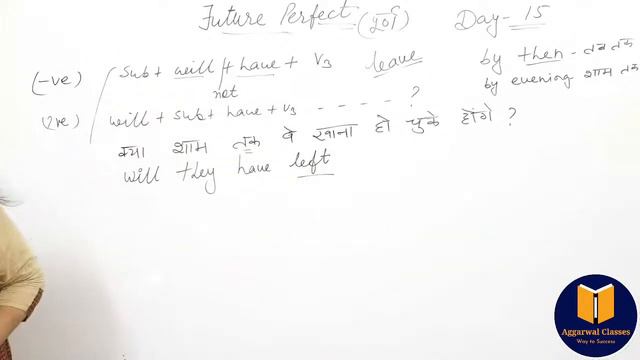 Future Perfect (पूर्ण) Day - 15
(-ve) Sub + will + have + V3 leave by then - तब तक
not by evening शाम तक
(?ve) will + sub + have + v3 - - - - - ?
क्या शाम तक वे रवाना हो चुके होंगे ?
will they have left
Aggarwal Classes
Way to Success